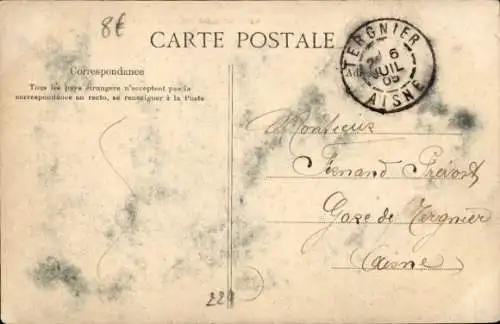 8€
CARTE POSTALE
TERGNIER
6
JUIL
09
AISNE
Correspondance
Tous les pays étrangers n'acceptent pas la
correspondance au recto, se renseigner à la Poste
Monsieur
Fernand Prévost
Gare de Tergnier
(Aisne)